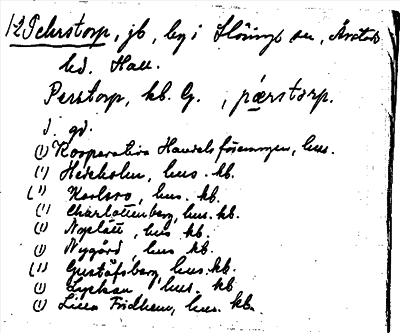 12 Pehrstorp, jb, beg i Slöinge sn, Årstads
hd. Hall.
Perstorp, kb. G. , pærstorp.
1. gd.
(1) Kooperativa Handelsföreningen, hus.
(1) Hedeholm, hus. kb.
(1) Karlsro, hus. kb.
(1) Charlottenberg, hus. kb.
(1) Nyslätt, hus kb.
(1) Nygård, hus kb.
(1) Gustafsberg, hus. kb.
(1) Lyckan, hus. kb.
(1) Lilla Fridhem, hus. kb.